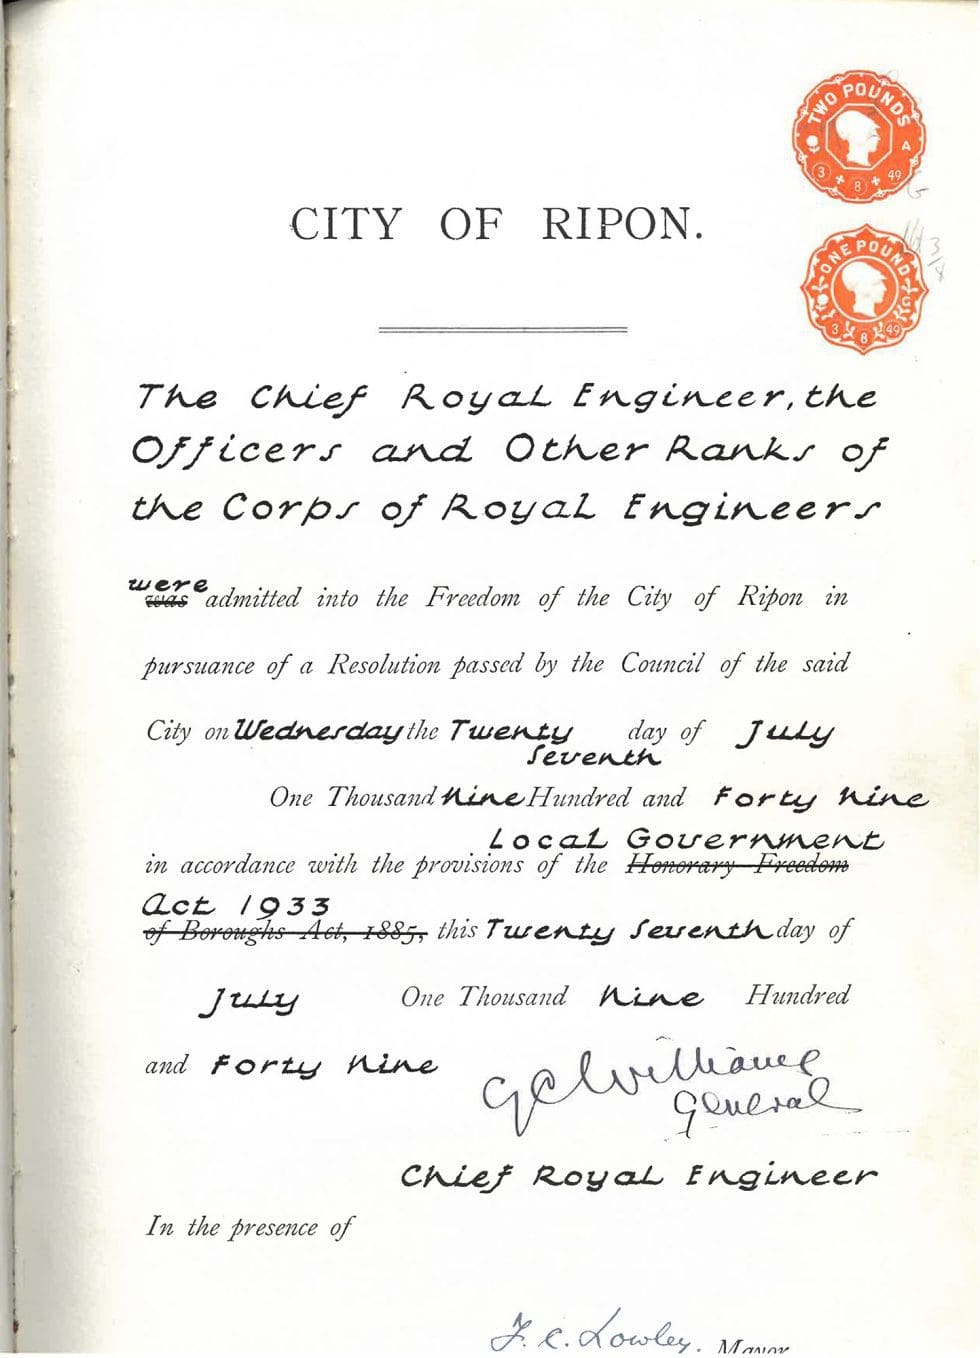 TWO POUNDS
A
3 8 49
CITY OF RIPON.
ONE POUND
3 8 49
3/8
The Chief Royal Engineer, the
Officers and Other Ranks of
the Corps of Royal Engineers
were
was admitted into the Freedom of the City of Ripon in
pursuance of a Resolution passed by the Council of the said
City on Wednesday the Twenty day of July
Seventh
One Thousand Nine Hundred and Forty Nine
Local Government
in accordance with the provisions of the Honorary Freedom
Act 1933
of Boroughs Act, 1885, this Twenty Seventh day of
July One Thousand Nine Hundred
and Forty Nine
G C Williams
General
Chief Royal Engineer
In the presence of
F. C. Lowley, Mayor